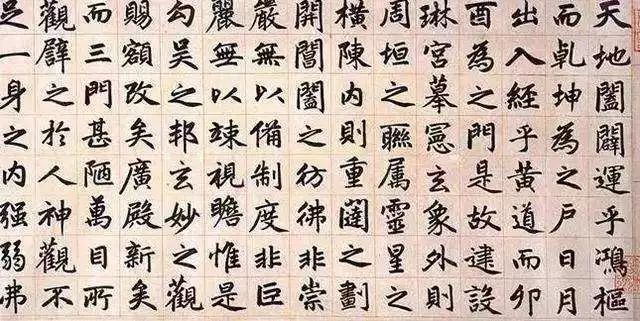 天地闔闢運乎鴻樞
而乹坤為之戶日月
出入經乎黃道而卯
酉為之門是故建設
琳宮摹憲玄象外則
周垣之聯属靈星之
橫陳内則重闥之劃
開閶闔之彷彿非崇
嚴無以備制度非巨
麗無以竦視瞻惟是
勾吴之邦玄妙之觀
賜額改矣廣殿新矣
而三門甚陋萬目所
觀辟之於人神觀不
足一身之内强弱弗